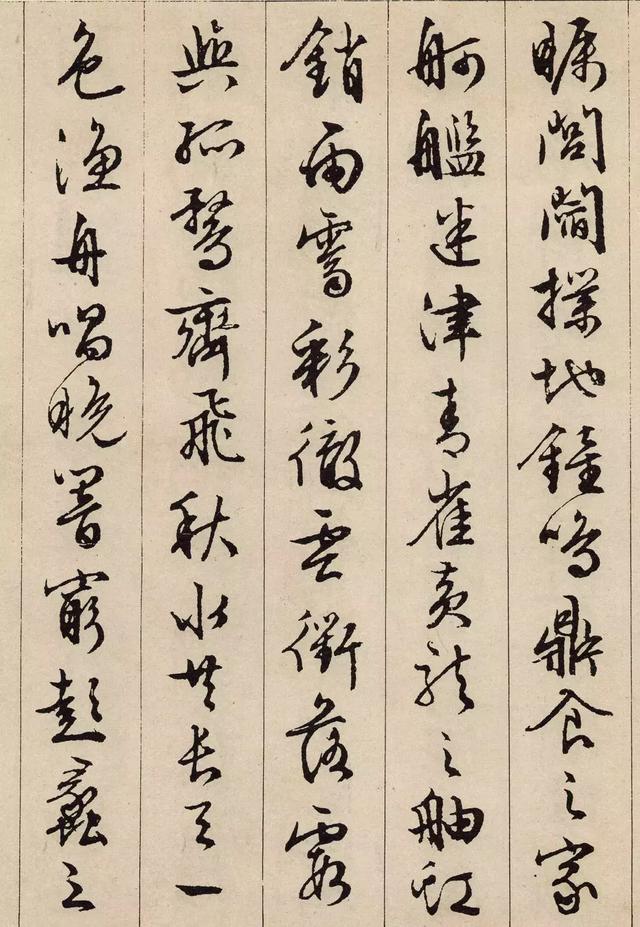 矚閭閻撲地鐘鳴鼎食之家
舸艦迷津青雀黄龍之舳虹
銷雨霽彩徹雲衢落霞
與孤鶩齊飛秋水共長天一
色漁舟唱晚響窮彭蠡之